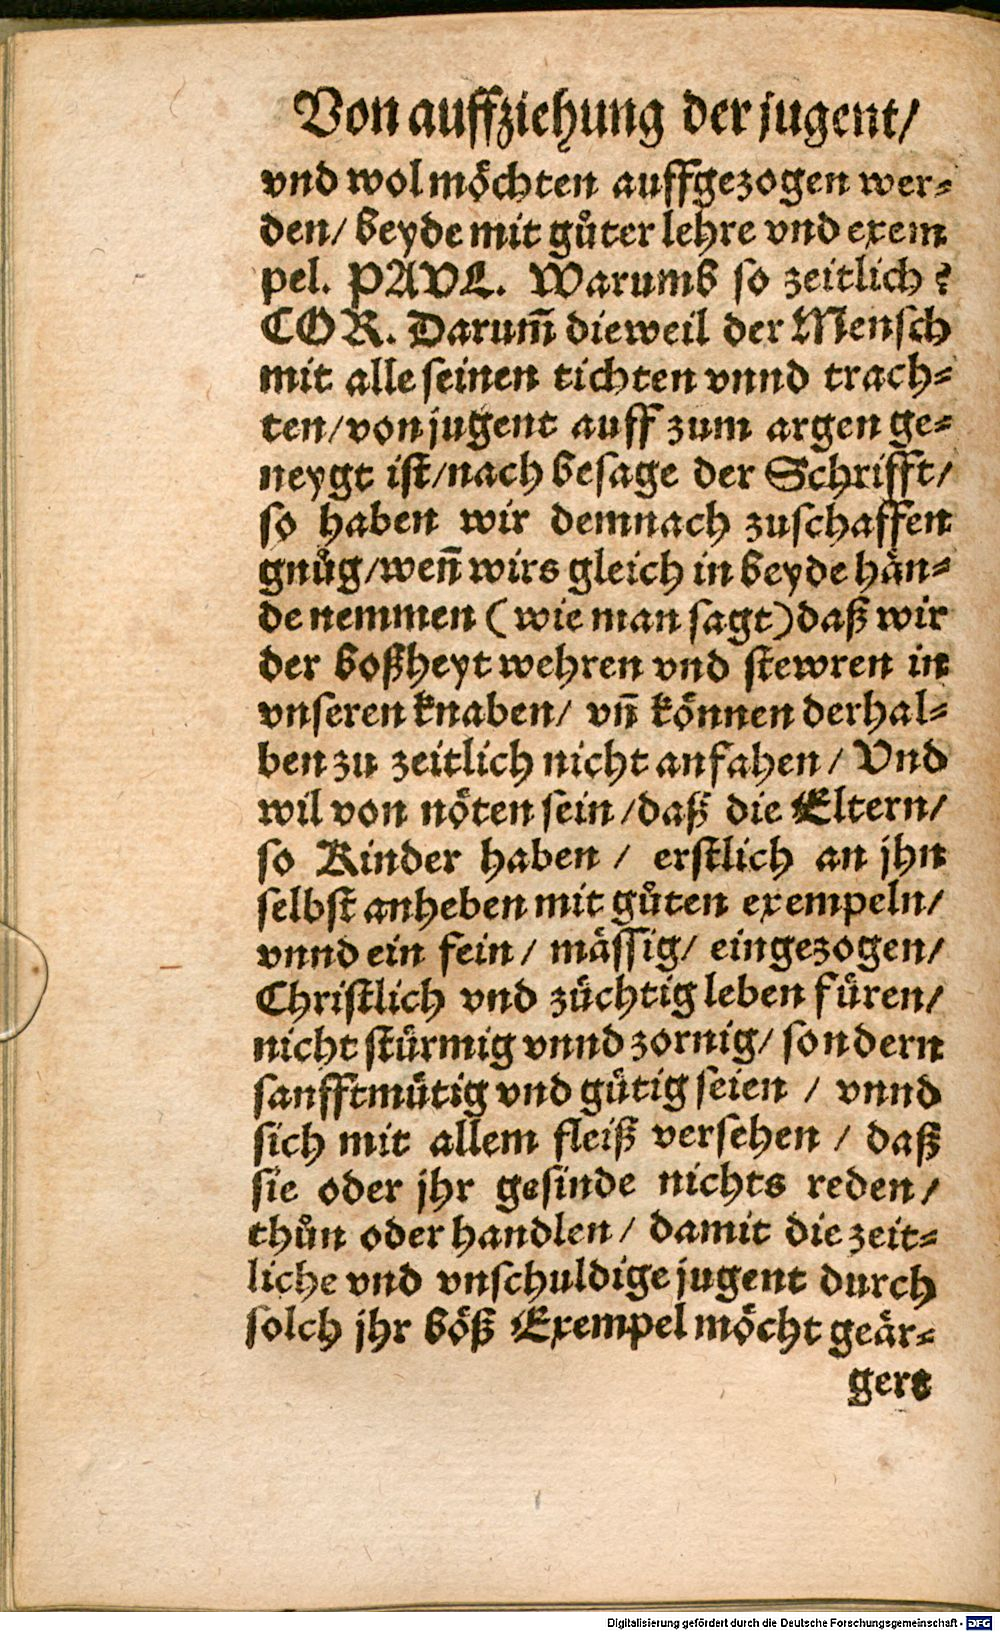 Von auffziehung der jugent/
vnd wol möchten auffgezogen wer⸗
den/ beyde mit gůter lehre vnd exem
pel. PAVL. Warumb so zeitlich?
COR. Darum̃ dieweil der Mensch
mit alle seinen tichten vnnd trach⸗
ten/von jugent auff zum argen ge⸗
neygt ist/nach besage der Schrifft/
so haben wir demnach zuschaffen
gnůg/wen̄ wirs gleich in beyde hän⸗
de nemmen (wie man sagt) daß wir
der boßheyt wehren vnd stewren in
vnseren knaben/ vn̄ können derhal⸗
ben zu zeitlich nicht anfahen/ Vnd
wil von nöten sein/daß die Eltern/
so Kinder haben/ erstlich an jhn
selbst anheben mit gůten exempeln/
vnnd ein fein/ mässig/ eingezogen/
Christlich vnd züchtig leben füren/
nicht stürmig vnnd zornig/ sondern
sanfftmütig vnd gütig seien/ vnnd
sich mit allem fleiß versehen/ daß
sie oder jhr gesinde nichts reden/
thůn oder handlen/ damit die zeit⸗
liche vnd vnschuldige jugent durch
solch jhr böß Exempel möcht geär⸗
gert
Digitalisierung gefördert durch die Deutsche Forschungsgemeinschaft - DFG